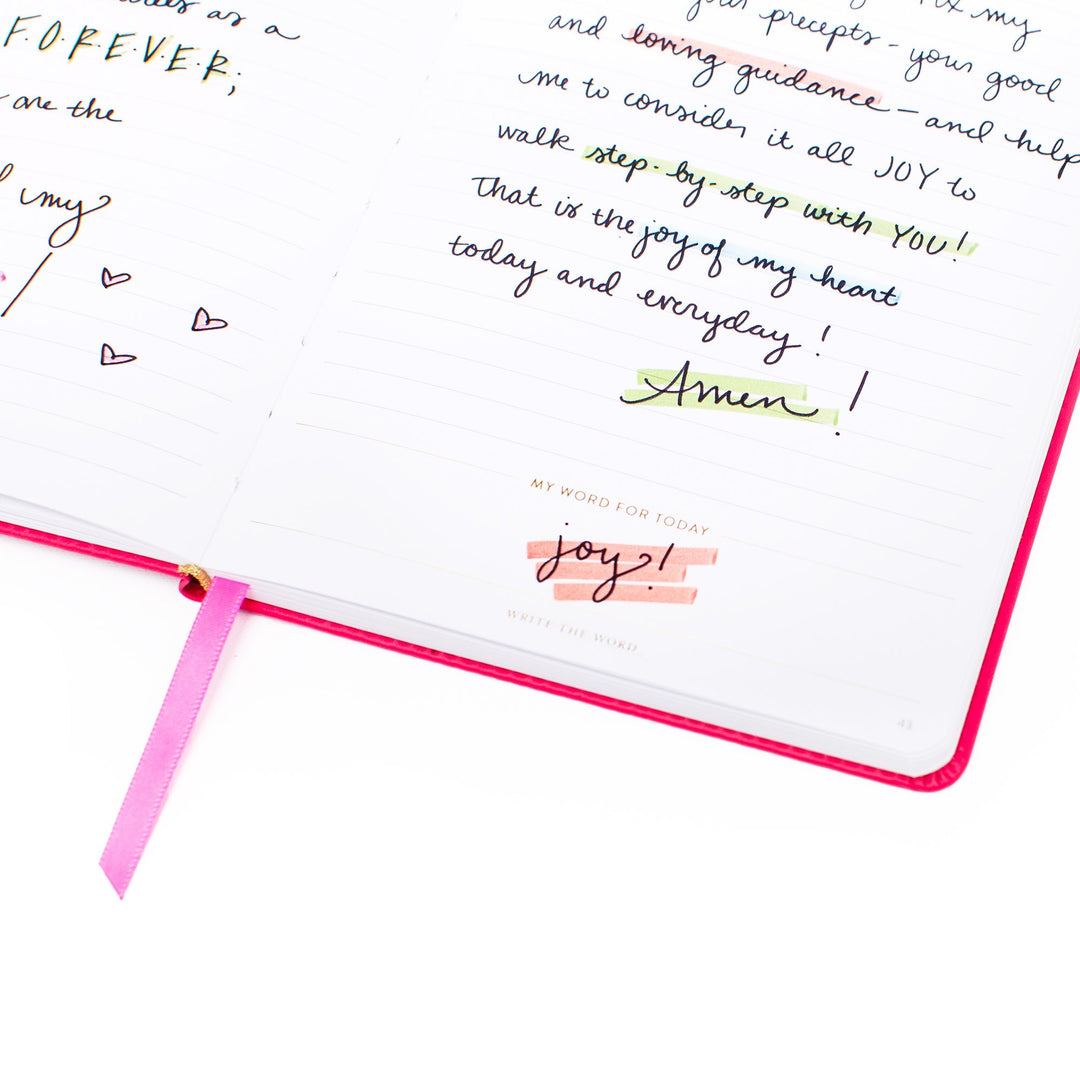 as a
F.O.R.E.V.E.R;
are the
my
my
your precepts - your good
and loving guidance - and help
me to consider it all JOY to
walk step-by-step with YOU!
That is the joy of my heart
today and everyday!
Amen!
MY WORD FOR TODAY
joy!
WRITE THE WORD
43